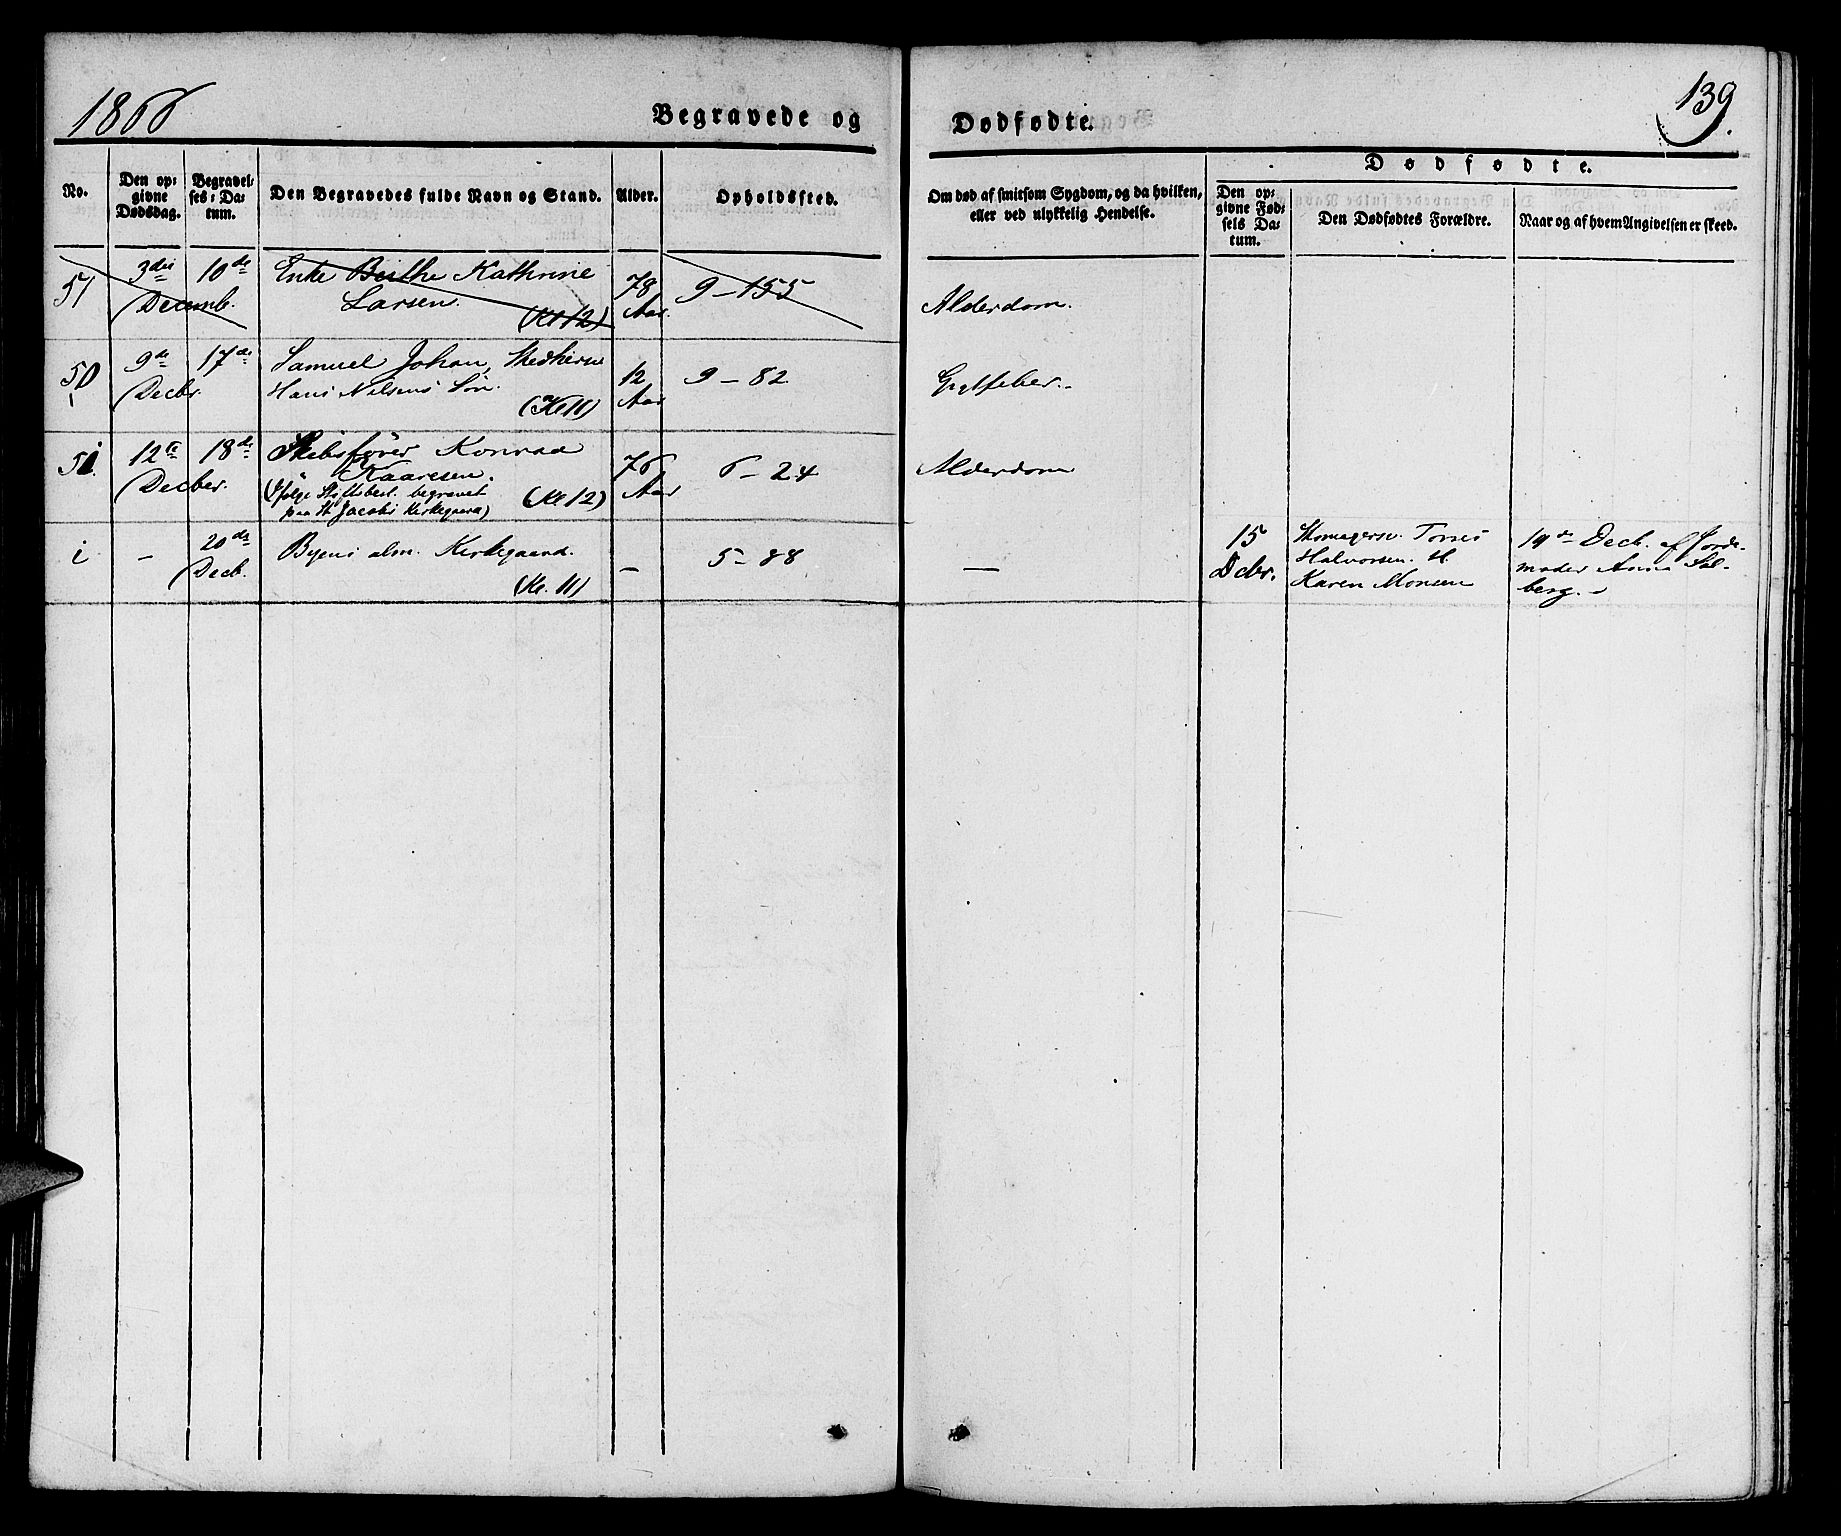 1866
Begravede og
Dødfødte.
139.
No.
Den op-
givne
Dødsdag.
Begravel-
ses-Da-
tum.
Den Begravedes fulde Navn og Stand.
Alder.
Opholdssted.
Om død af smitsom Sygdom, og da hvilken,
eller ved ulykkelig Hendelse.
Dødfødte.
Den op-
givne Fød-
sels Da-
tum.
Den Dødfødtes Forældre.
Naar og af hvem Angivelsen er skeed.
51
3die
10de
Decemb.
Enke Birthe Kathrine
Larsen.
(Kl 12)
78
Aar.
9-155
Alderdom.
50
9de
17de
Decbr.
Samuel Johan,
Hans Nilsens Søn
(Kl 11)
12
Aar
9-82
51.
12te
18de
Decber.
Skibsfører Konrad
Kaaresen.
(Ifølge begravet
paa St Jacobs Kirkegaard)
(Kl 12)
76
Aar
6-24
Alderdom
1
-
20de
Decb.
Byens alm. Kirkegaard.
(Kl. 11)
-
5-88
-
15
Dcbr.
Halvorsen. H
Karen Monsen
19de Decb. af Jorde-
moder Anna Sol-
berg.-